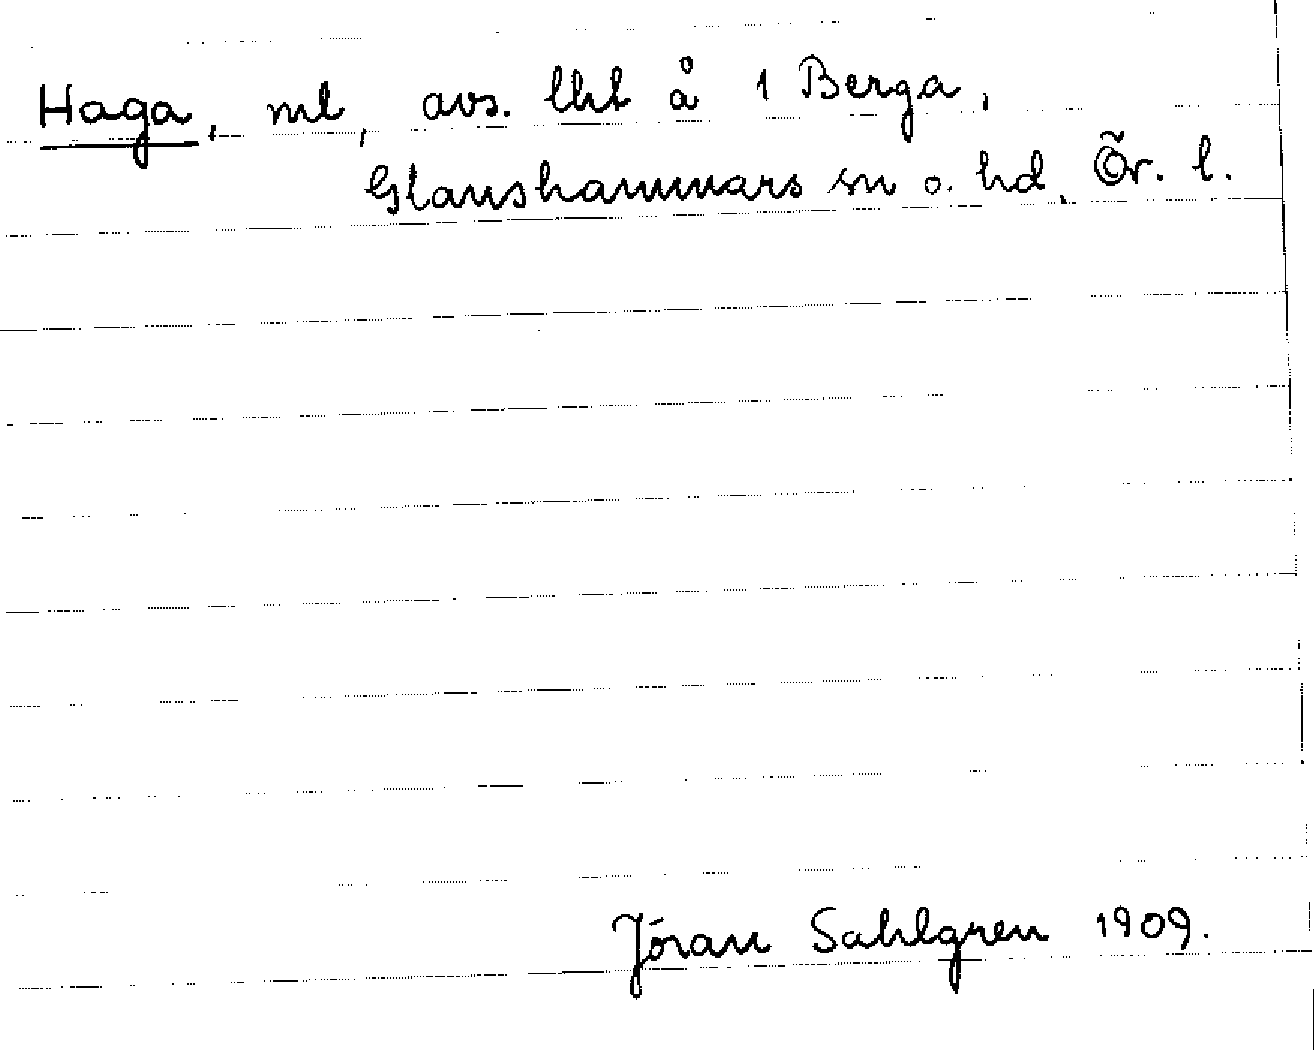 Haga, ml, avs. lht å 1 Berga,
Glanshammars sn o. hd, Ör. l.
Jöran Sahlgren 1909.